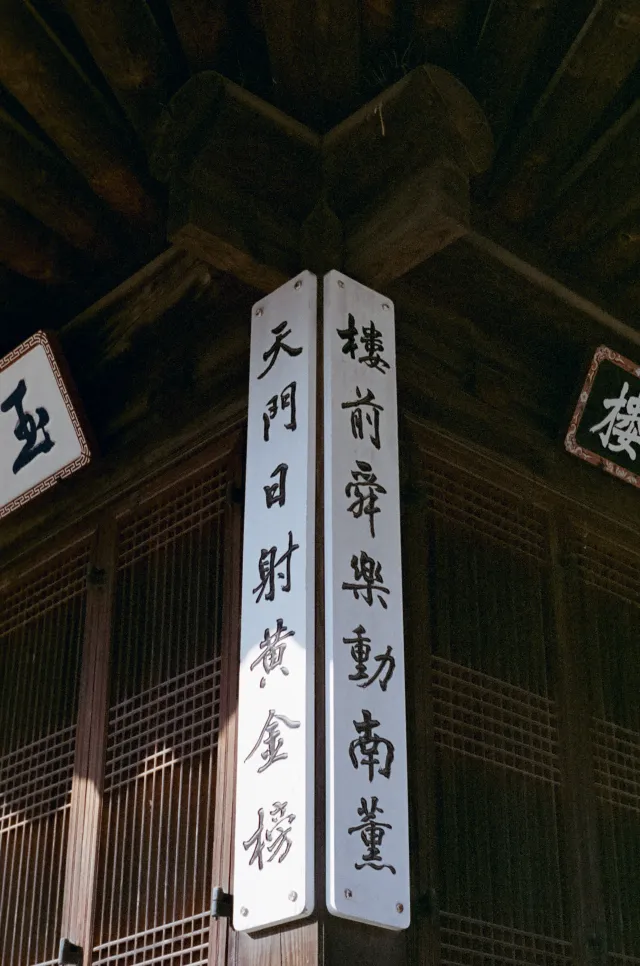 樓
樓前舜樂動南薰
天門日射黃金榜
玉